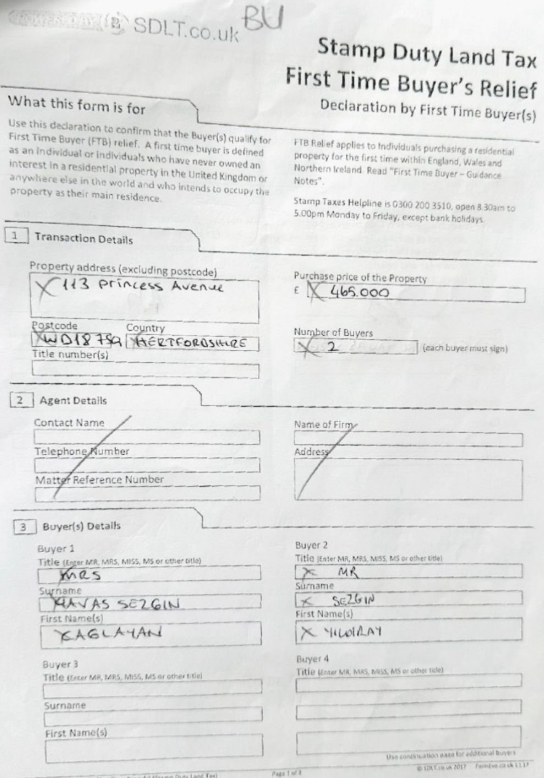 SDLT.co.uk BU
Stamp Duty Land Tax
First Time Buyer's Relief
Declaration by First Time Buyer(s)
What this form is for
Use this declaration to confirm that the Buyer(s) qualify for
First Time Buyer (FTB) relief. A first time buyer is defined
as an individual or individuals who have never owned an
interest in a residential property in the United Kingdom or
anywhere else in the world and who intends to occupy the
property as their main residence.
FTB Relief applies to individuals purchasing a residential
property for the first time within England, Wales and
Northern Ireland. Read "First Time Buyer – Guidance
Notes".
Stamp Taxes Helpline is 0300 200 3510, open 8.30am to
5.00pm Monday to Friday, except bank holidays.
1 Transaction Details
Property address (excluding postcode)
X 113 Princess Avenue
Purchase price of the Property
£ X 465.000
Postcode Country
X WD18 7 X HERTFORDSHIRE
Number of Buyers
X 2 (each buyer must sign)
Title number(s)
2 Agent Details
Contact Name
Name of Firm
Telephone Number
Address
Matter Reference Number
3 Buyer(s) Details
Buyer 1
Title (Enter MR, MRS, MISS, MS or other title)
X MRS
Surname
HAVAS SEZGIN
First Name(s)
CAGLAYAN
Buyer 2
Title (Enter MR, MRS, MISS, MS or other title)
X MR
Surname
X SEZGIN
First Name(s)
X YILDIRAY
Buyer 3
Title (Enter MR, MRS, MISS, MS or other title)
Surname
First Name(s)
Buyer 4
Title (Enter MR, MRS, MISS, MS or other title)
Use continuation page for additional Buyers
Page 1 of
© SDLT.co.uk 2017